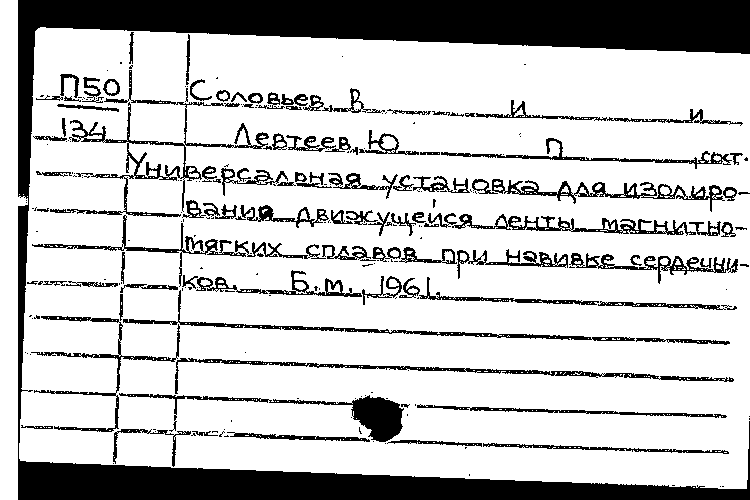 П50 Соловьев, В и и
134 Левтеев, Ю П , сост.
Универсальная установка для изолиро-
вания движущейся ленты магнитно-
мягких сплавов при навивке сердечни-
ков. Б.м., 1961.